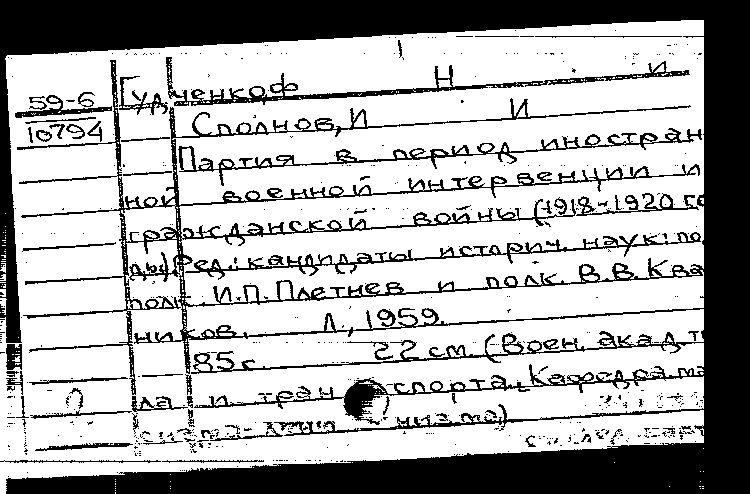 59-6
10794
Гудченко,Ф Н и
Сполнов, И И
Партия в период иностран
ной военной интервенции и
гражданской войны (1918-1920 го
ды) Ред.: кандидаты историч. наук: по
полк. И.П. Плетнев и полк. В.В. Ква
ников. Л., 1959.
85с. 22 см. (Воен. акад. т
ла и транспорта. Кафедра ма
сизма-ленинизма)